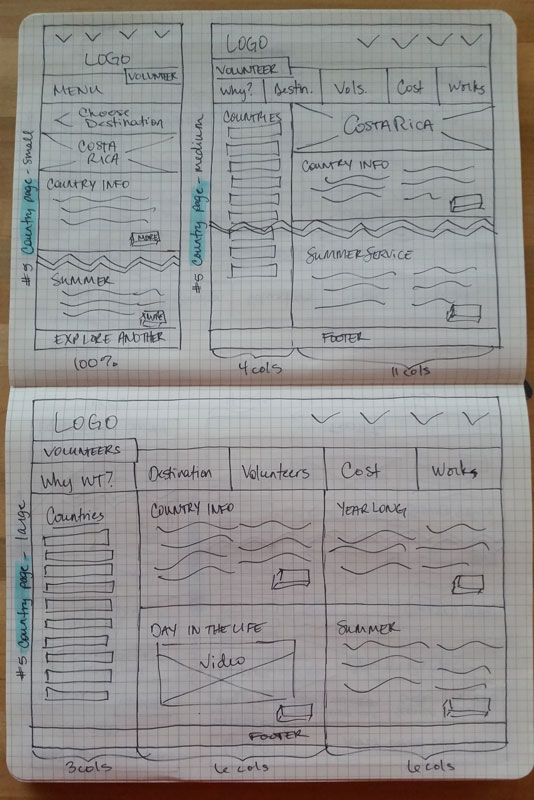 #5 Country page - small
LOGO
VOLUNTEER
MENU
Choose
Destination
COSTA
RICA
COUNTRY INFO
MORE
SUMMER
MORE
EXPLORE ANOTHER
100%
#5 Country page - medium
LOGO
VOLUNTEER
Why? Destin. Vols. Cost Works
COUNTRIES
COSTA RICA
COUNTRY INFO
SUMMER SERVICE
FOOTER
4 cols 11 cols
#5 Country page - large
LOGO
VOLUNTEERS
Why WT? Destination Volunteers Cost Works
Countries
COUNTRY INFO
YEAR LONG
DAY IN THE LIFE
Video
SUMMER
FOOTER
3 cols 6 cols 6 cols